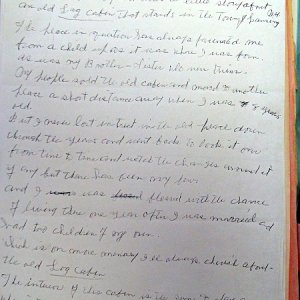 little story about
an old Log Cabin that stands in the Town
of the place in question has always fascinated me
from a child up as it was where I was born
as was my Brother Sister
My people sold the old cabin and moved to another
place a short distance away when I was 8 years
old.
But I never lost interest in the old place down
through the years and went back to look it over
from time to time and noted the changes around it
if any but there has been very few
and I was blessed with the chance
of living there one year after I was married and
had two children of my own.
Which is one more memory I'll always cherish about
the old Log Cabin
The interior of this cabin is the